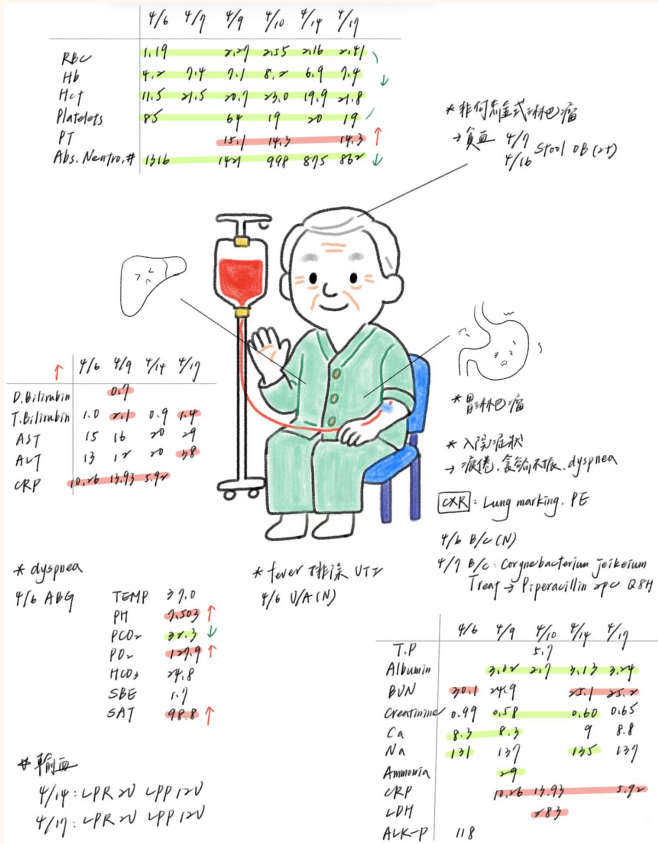 4/6 4/7 4/9 4/10 4/14 4/17
RBC 1.19 2.27 2.55 2.16 2.41
Hb 4.2 7.4 7.1 8.2 6.9 7.4
Hct 11.5 21.5 20.7 23.0 19.9 21.8
Platelets 85 64 19 20 19
PT 15.1 14.3 14.3 ↑
Abs. Neutro.# 1316 1421 998 875 862 ↓
*非何杰金式淋巴瘤
→貧血 4/7
4/16 Stool OB (2+)
↑ 4/6 4/9 4/14 4/17
D.Bilirubin 0.7
T.Bilirubin 1.0 2.1 0.9 1.4
AST 15 16 20 29
ALT 13 12 20 38
CRP 10.26 13.93 5.92
*胃淋巴瘤
*入院症狀
→疲倦、食慾不振、dyspnea
CXR = Lung marking. PE
4/6 B/C (N)
4/7 B/C: Corynebacterium jeikeium
Treat → Piperacillin 2pc Q8H
*dyspnea
4/6 ABG
TEMP 37.0
PH 7.503 ↑
PCO2 32.3 ↓
PO2 127.9 ↑
HCO3 24.8
SBE 1.7
SAT 98.8 ↑
*fever 排除 UTI
4/6 U/A (N)
4/6 4/9 4/10 4/14 4/17
T.P 5.7
Albumin 3.02 2.7 3.13 3.24
BUN 30.1 24.9 25.1 25.2
Creatinine 0.99 0.58 0.60 0.65
Ca 8.3 8.3 9 8.8
Na 131 137 135 137
Ammonia 29
CRP 10.26 13.93 5.92
LDH 283
ALK-P 118
#輸血
4/14: LPR 2U LPP 12U
4/17: LPR 2U LPP 12U